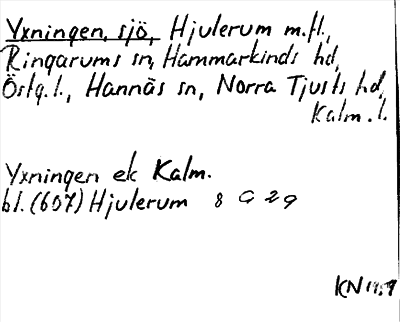 Yxningen, sjö, Hjulerum m.fl.,
Ringarums sn, Hammarkinds hd,
Östg.l., Hannäs sn, Norra Tjusts hd,
Kalm.l.
Yxningen ek Kalm.
bl. (607) Hjulerum 8 G 2 g
KN 1959